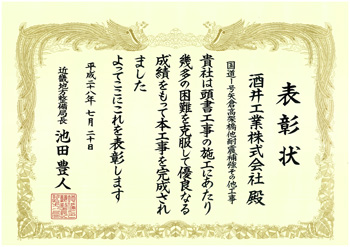 表彰状
酒井工業株式会社 殿
国道一号矢倉高架橋他耐震補強その他工事
貴社は頭書工事の施工にあたり
幾多の困難を克服して優良なる
成績をもって本工事を完成され
ました
よってここにこれを表彰します
平成二十八年 七月 二十日
近畿地方整備局長 池田豊人